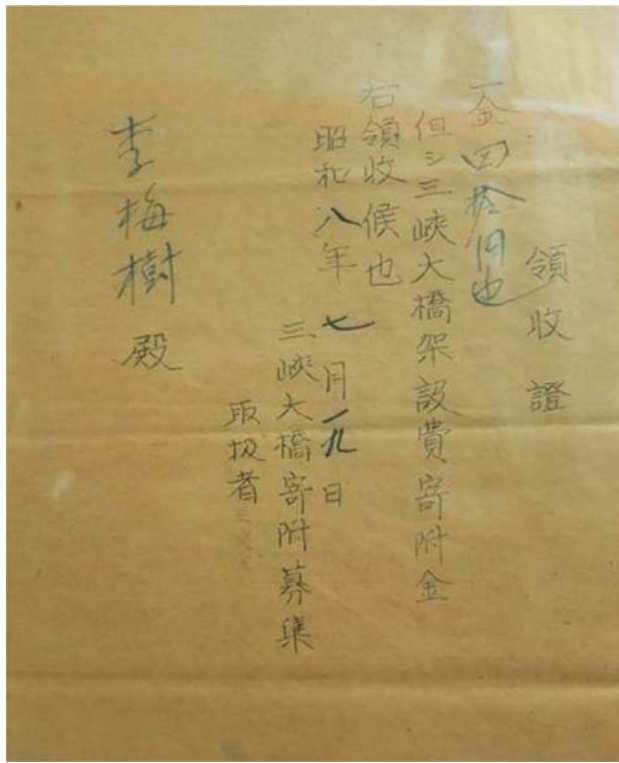 領收證
一金四拾円也
但シ三峽大橋架設費寄附金
右領收候也
昭和八年七月一九日
三峽大橋寄附募集
取扱者
李梅樹殿